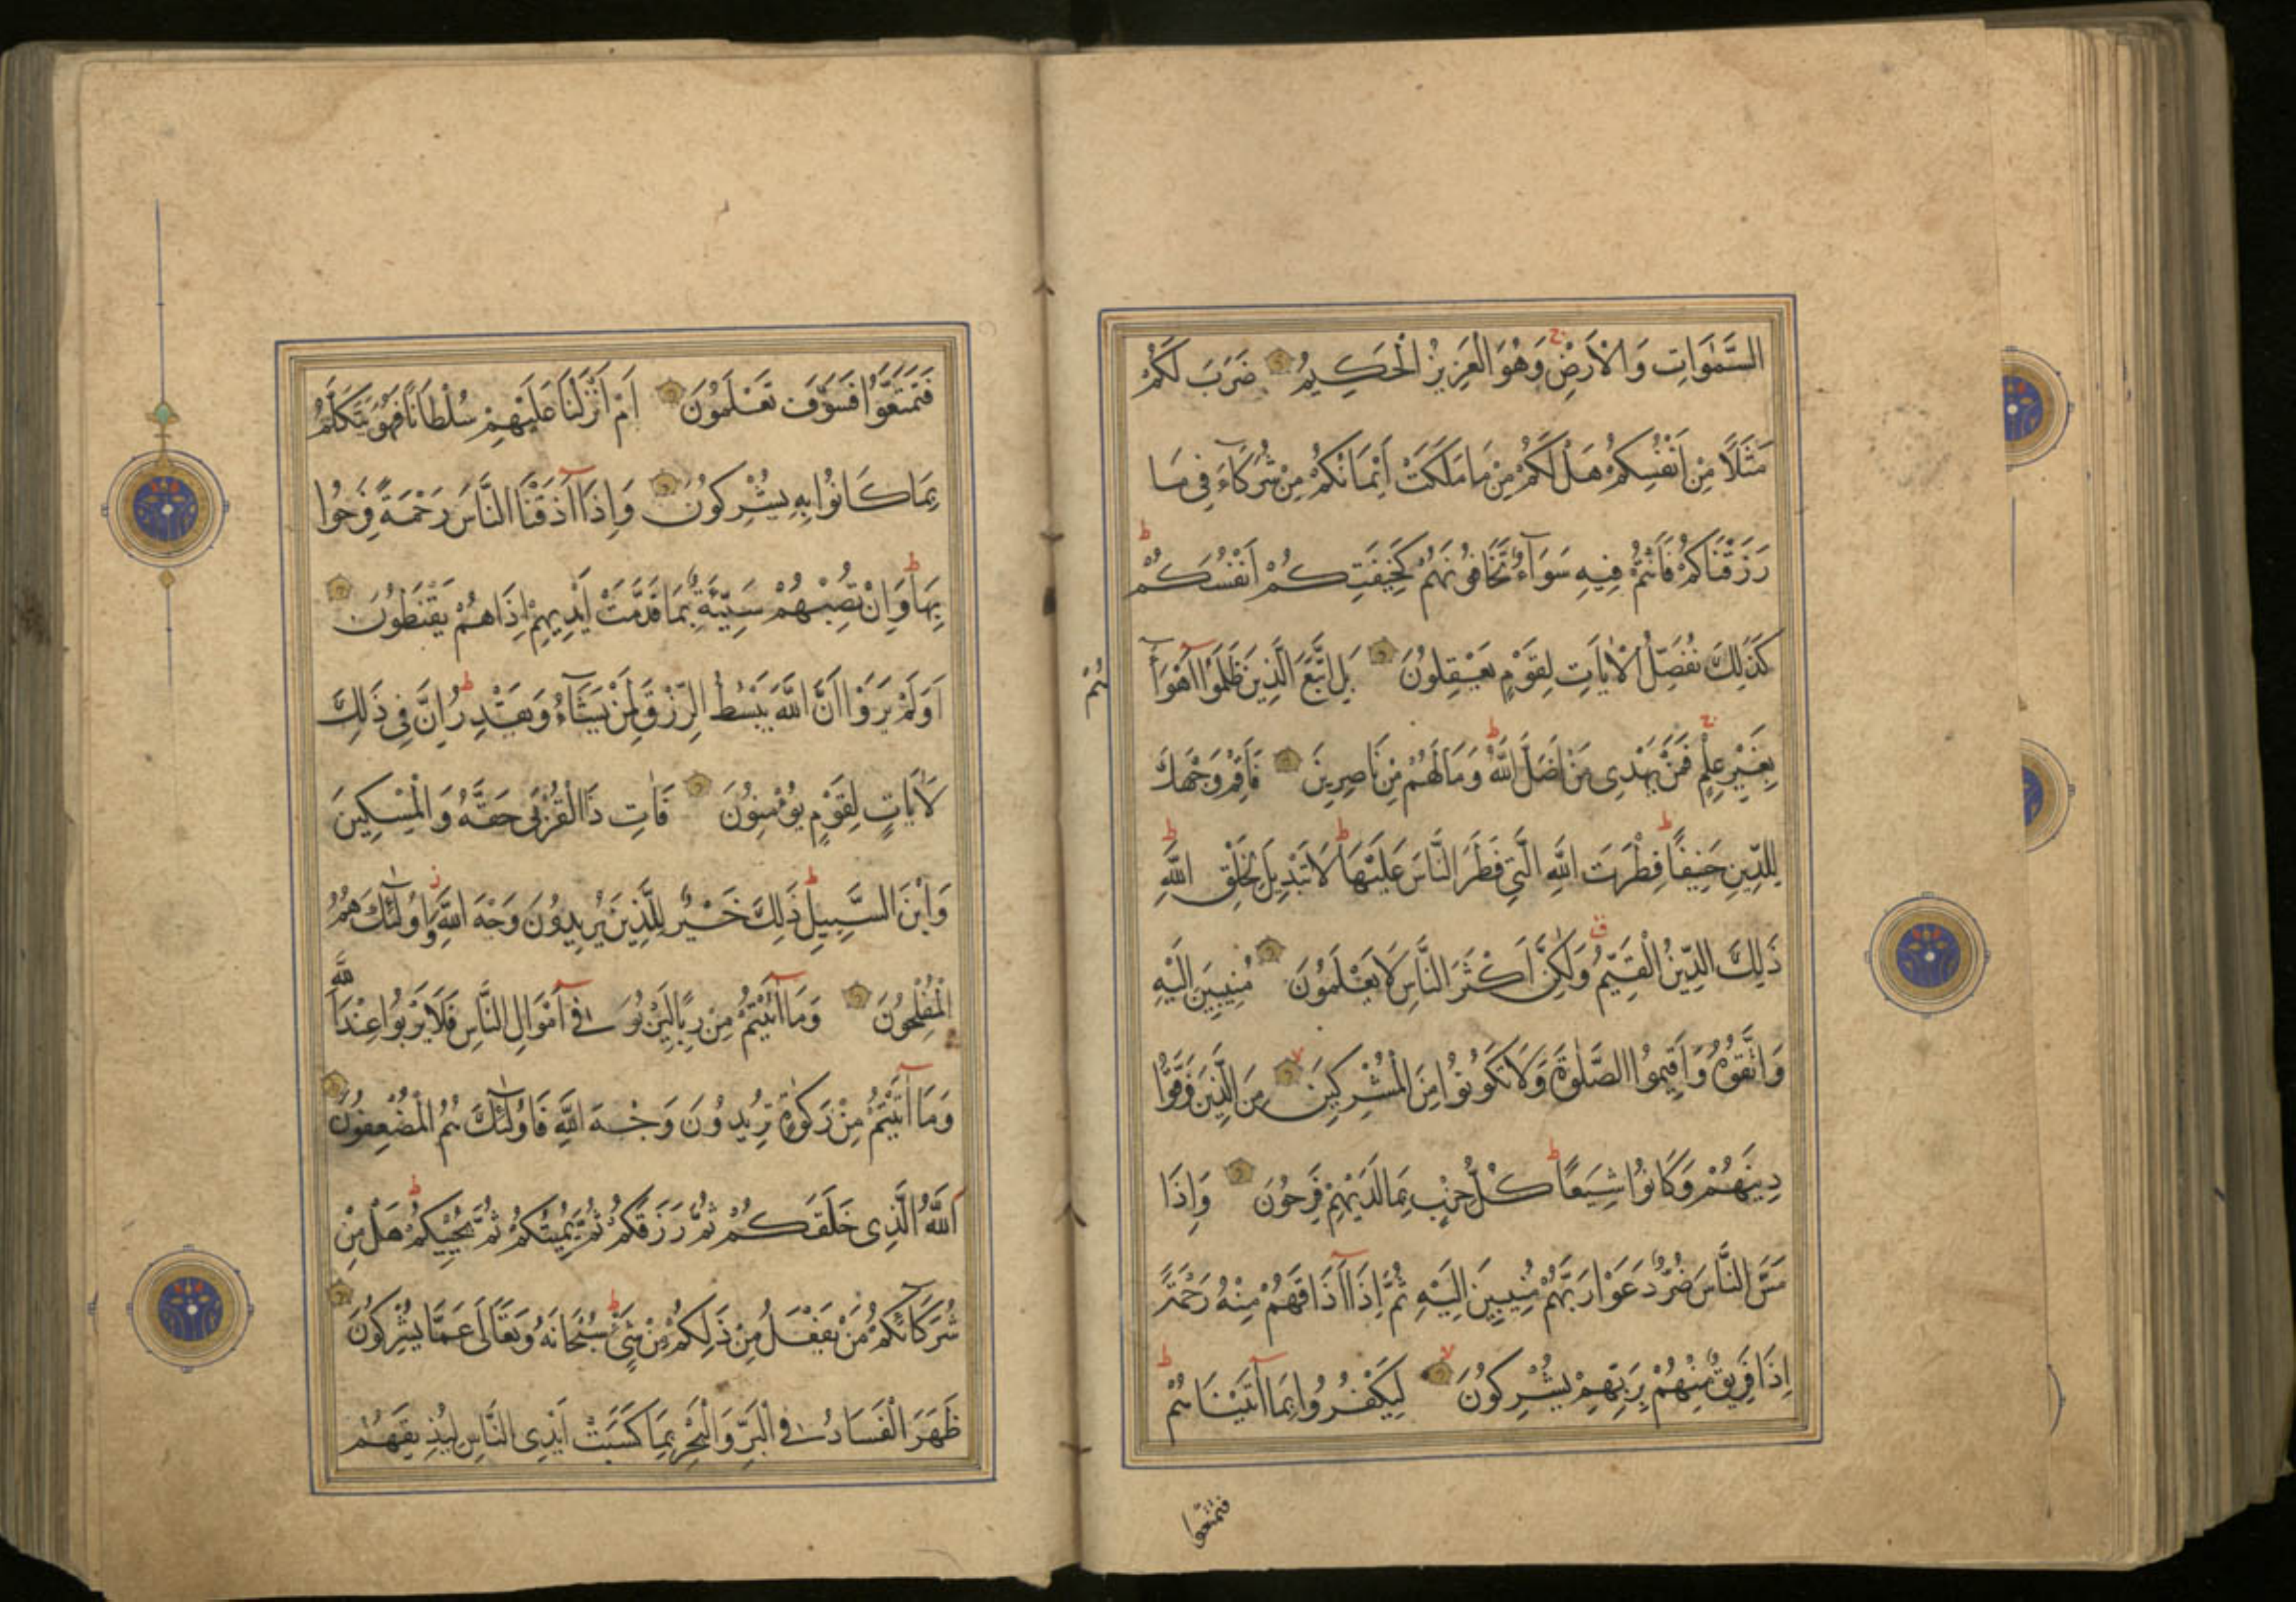 السَّمٰوَاتِ وَالْاَرْضِ وَهُوَ الْعَزِيزُ الْحَكِيمُ ضَرَبَ لَكُمْ
مَثَلًا مِنْ اَنْفُسِكُمْ هَلْ لَكُمْ مِنْ مَا مَلَكَتْ اَيْمَانُكُمْ مِنْ شُرَكَاءَ فِى مَا
رَزَقْنَاكُمْ فَاَنْتُمْ فِيهِ سَوَآءٌ تَخَافُونَهُمْ كَخِيفَتِكُمْ اَنْفُسَكُمْ
كَذٰلِكَ نُفَصِّلُ الْاٰيَاتِ لِقَوْمٍ يَعْقِلُونَ بَلِ اتَّبَعَ الَّذِينَ ظَلَمُوا اَهْوَآءَ
هُمْ
بِغَيْرِ عِلْمٍ فَمَنْ يَهْدِى مَنْ اَضَلَّ اللّٰهُ وَمَا لَهُمْ مِنْ نَاصِرِينَ فَاَقِمْ وَجْهَكَ
لِلدِّينِ حَنِيفًا فِطْرَتَ اللّٰهِ الَّتِى فَطَرَ النَّاسَ عَلَيْهَا لَا تَبْدِيلَ لِخَلْقِ اللّٰهِ
ذٰلِكَ الدِّينُ الْقَيِّمُ وَلٰكِنَّ اَكْثَرَ النَّاسِ لَا يَعْلَمُونَ مُنِيبِينَ اِلَيْهِ
وَاتَّقُوهُ وَاَقِيمُوا الصَّلٰوةَ وَلَا تَكُونُوا مِنَ الْمُشْرِكِينَ مِنَ الَّذِينَ فَرَّقُوا
دِينَهُمْ وَكَانُوا شِيَعًا كُلُّ حِزْبٍ بِمَا لَدَيْهِمْ فَرِحُونَ وَاِذَا
مَسَّ النَّاسَ ضُرٌّ دَعَوْا رَبَّهُمْ مُنِيبِينَ اِلَيْهِ ثُمَّ اِذَا اَذَاقَهُمْ مِنْهُ رَحْمَةً
اِذَا فَرِيقٌ مِنْهُمْ بِرَبِّهِمْ يُشْرِكُونَ لِيَكْفُرُوا بِمَا اٰتَيْنَاهُمْ
فتمتعوا
فَتَمَتَّعُوا فَسَوْفَ تَعْلَمُونَ اَمْ اَنْزَلْنَا عَلَيْهِمْ سُلْطَانًا فَهُوَ يَتَكَلَّمُ
بِمَا كَانُوا بِهِ يُشْرِكُونَ وَاِذَا اَذَقْنَا النَّاسَ رَحْمَةً فَرِحُوا
بِهَا وَاِنْ تُصِبْهُمْ سَيِّئَةٌ بِمَا قَدَّمَتْ اَيْدِيهِمْ اِذَا هُمْ يَقْنَطُونَ
اَوَلَمْ يَرَوْا اَنَّ اللّٰهَ يَبْسُطُ الرِّزْقَ لِمَنْ يَشَآءُ وَيَقْدِرُ اِنَّ فِى ذٰلِكَ
لَاٰيَاتٍ لِقَوْمٍ يُؤْمِنُونَ فَاٰتِ ذَا الْقُرْبٰى حَقَّهُ وَالْمِسْكِينَ
وَابْنَ السَّبِيلِ ذٰلِكَ خَيْرٌ لِلَّذِينَ يُرِيدُونَ وَجْهَ اللّٰهِ وَاُولٰئِكَ هُمُ
الْمُفْلِحُونَ وَمَا اٰتَيْتُمْ مِنْ رِبًا لِيَرْبُوَ فِى اَمْوَالِ النَّاسِ فَلَا يَرْبُوا عِنْدَ اللّٰهِ
وَمَا اٰتَيْتُمْ مِنْ زَكٰوةٍ تُرِيدُونَ وَجْهَ اللّٰهِ فَاُولٰئِكَ هُمُ الْمُضْعِفُونَ
اَللّٰهُ الَّذِى خَلَقَكُمْ ثُمَّ رَزَقَكُمْ ثُمَّ يُمِيتُكُمْ ثُمَّ يُحْيِيكُمْ هَلْ مِنْ
شُرَكَائِكُمْ مَنْ يَفْعَلُ مِنْ ذٰلِكُمْ مِنْ شَىْءٍ سُبْحَانَهُ وَتَعَالٰى عَمَّا يُشْرِكُونَ
ظَهَرَ الْفَسَادُ فِى الْبَرِّ وَالْبَحْرِ بِمَا كَسَبَتْ اَيْدِى النَّاسِ لِيُذِيقَهُمْ